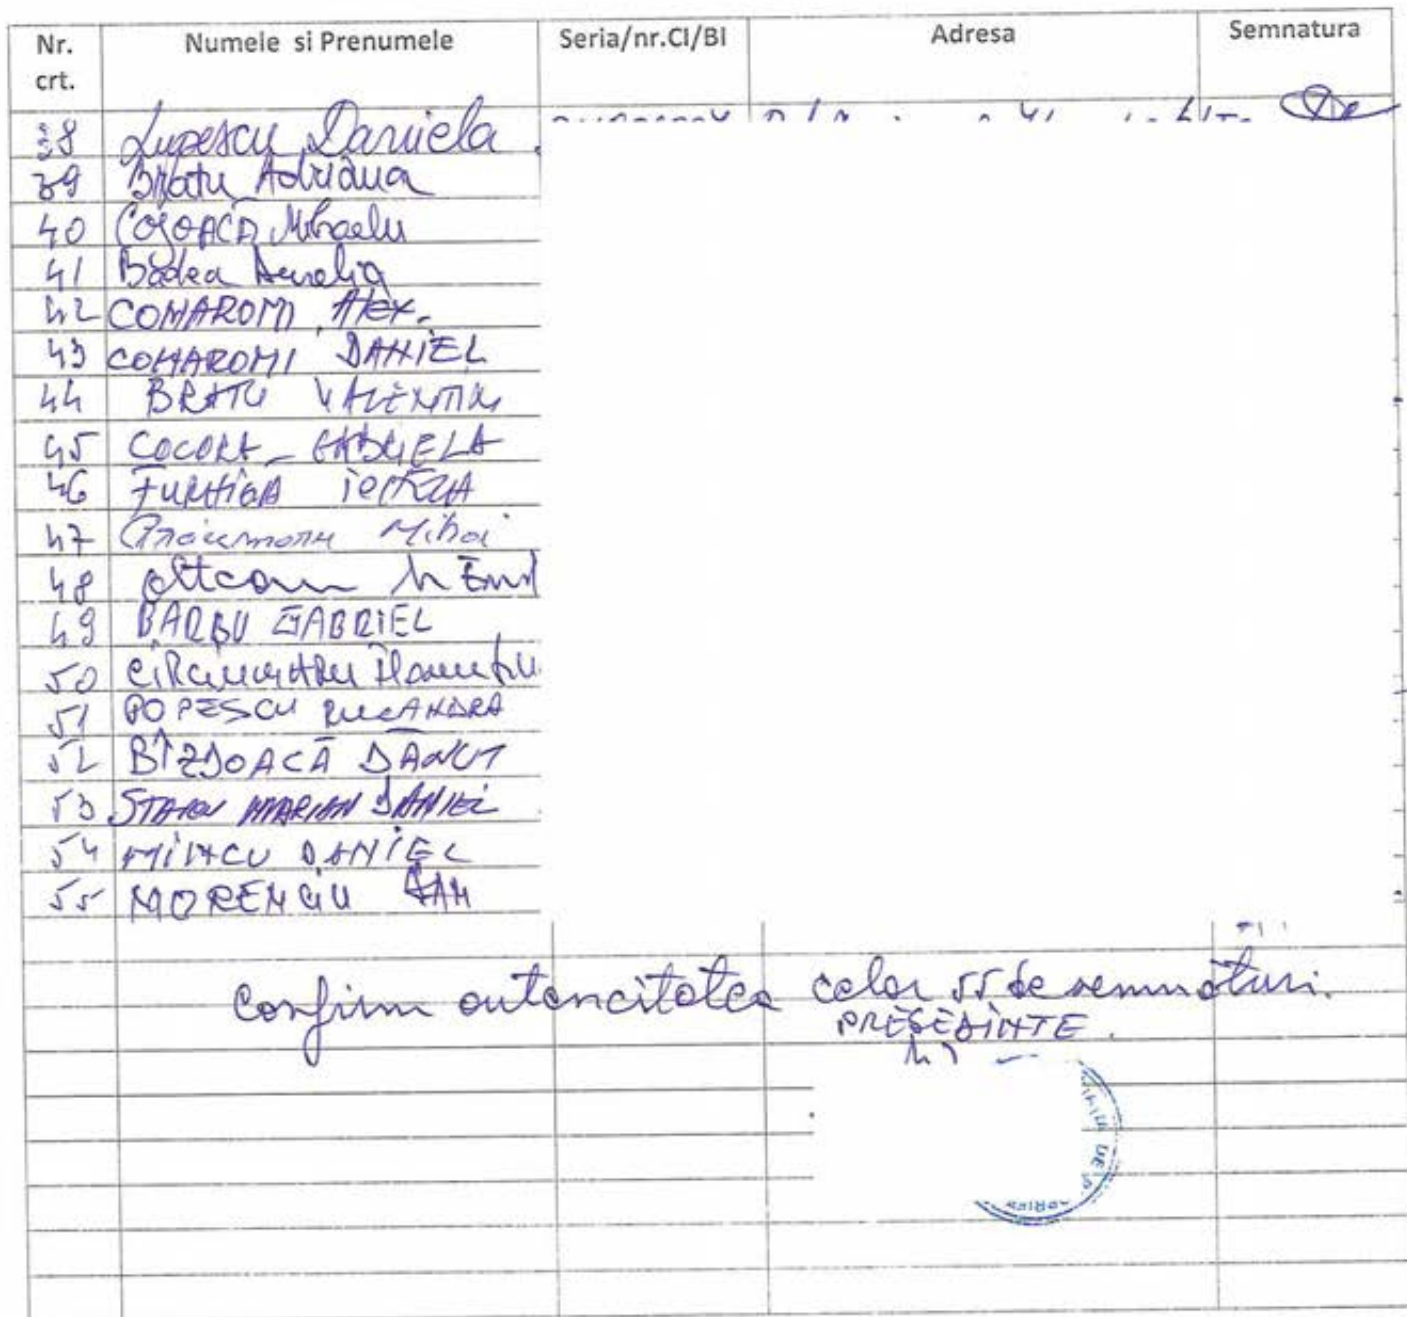 Nr. crt. Numele si Prenumele Seria/nr.CI/BI Adresa Semnatura
38 Lupescu Daniela
39 Bratu Adriana
40 COJOACĂ Mihaela
41 Badea Aurelia
42 COMAROMI Alex.
43 COMAROMI DANIEL
44 BRATU VALENTIN
45 COCORA GABRIELA
46 FURNIGA
47 Mihai
48 Emil
49 BARBU GABRIEL
50
51 POPESCU RUXANDRA
52 BÎZDOACĂ DĂNUT
53 STAICU MARIAN DANIEL
54 MINCU DANIEL
55 MORENCIU DAN
Confirm autencitatea celor 55 de semnături.
PREȘEDINTE
DE